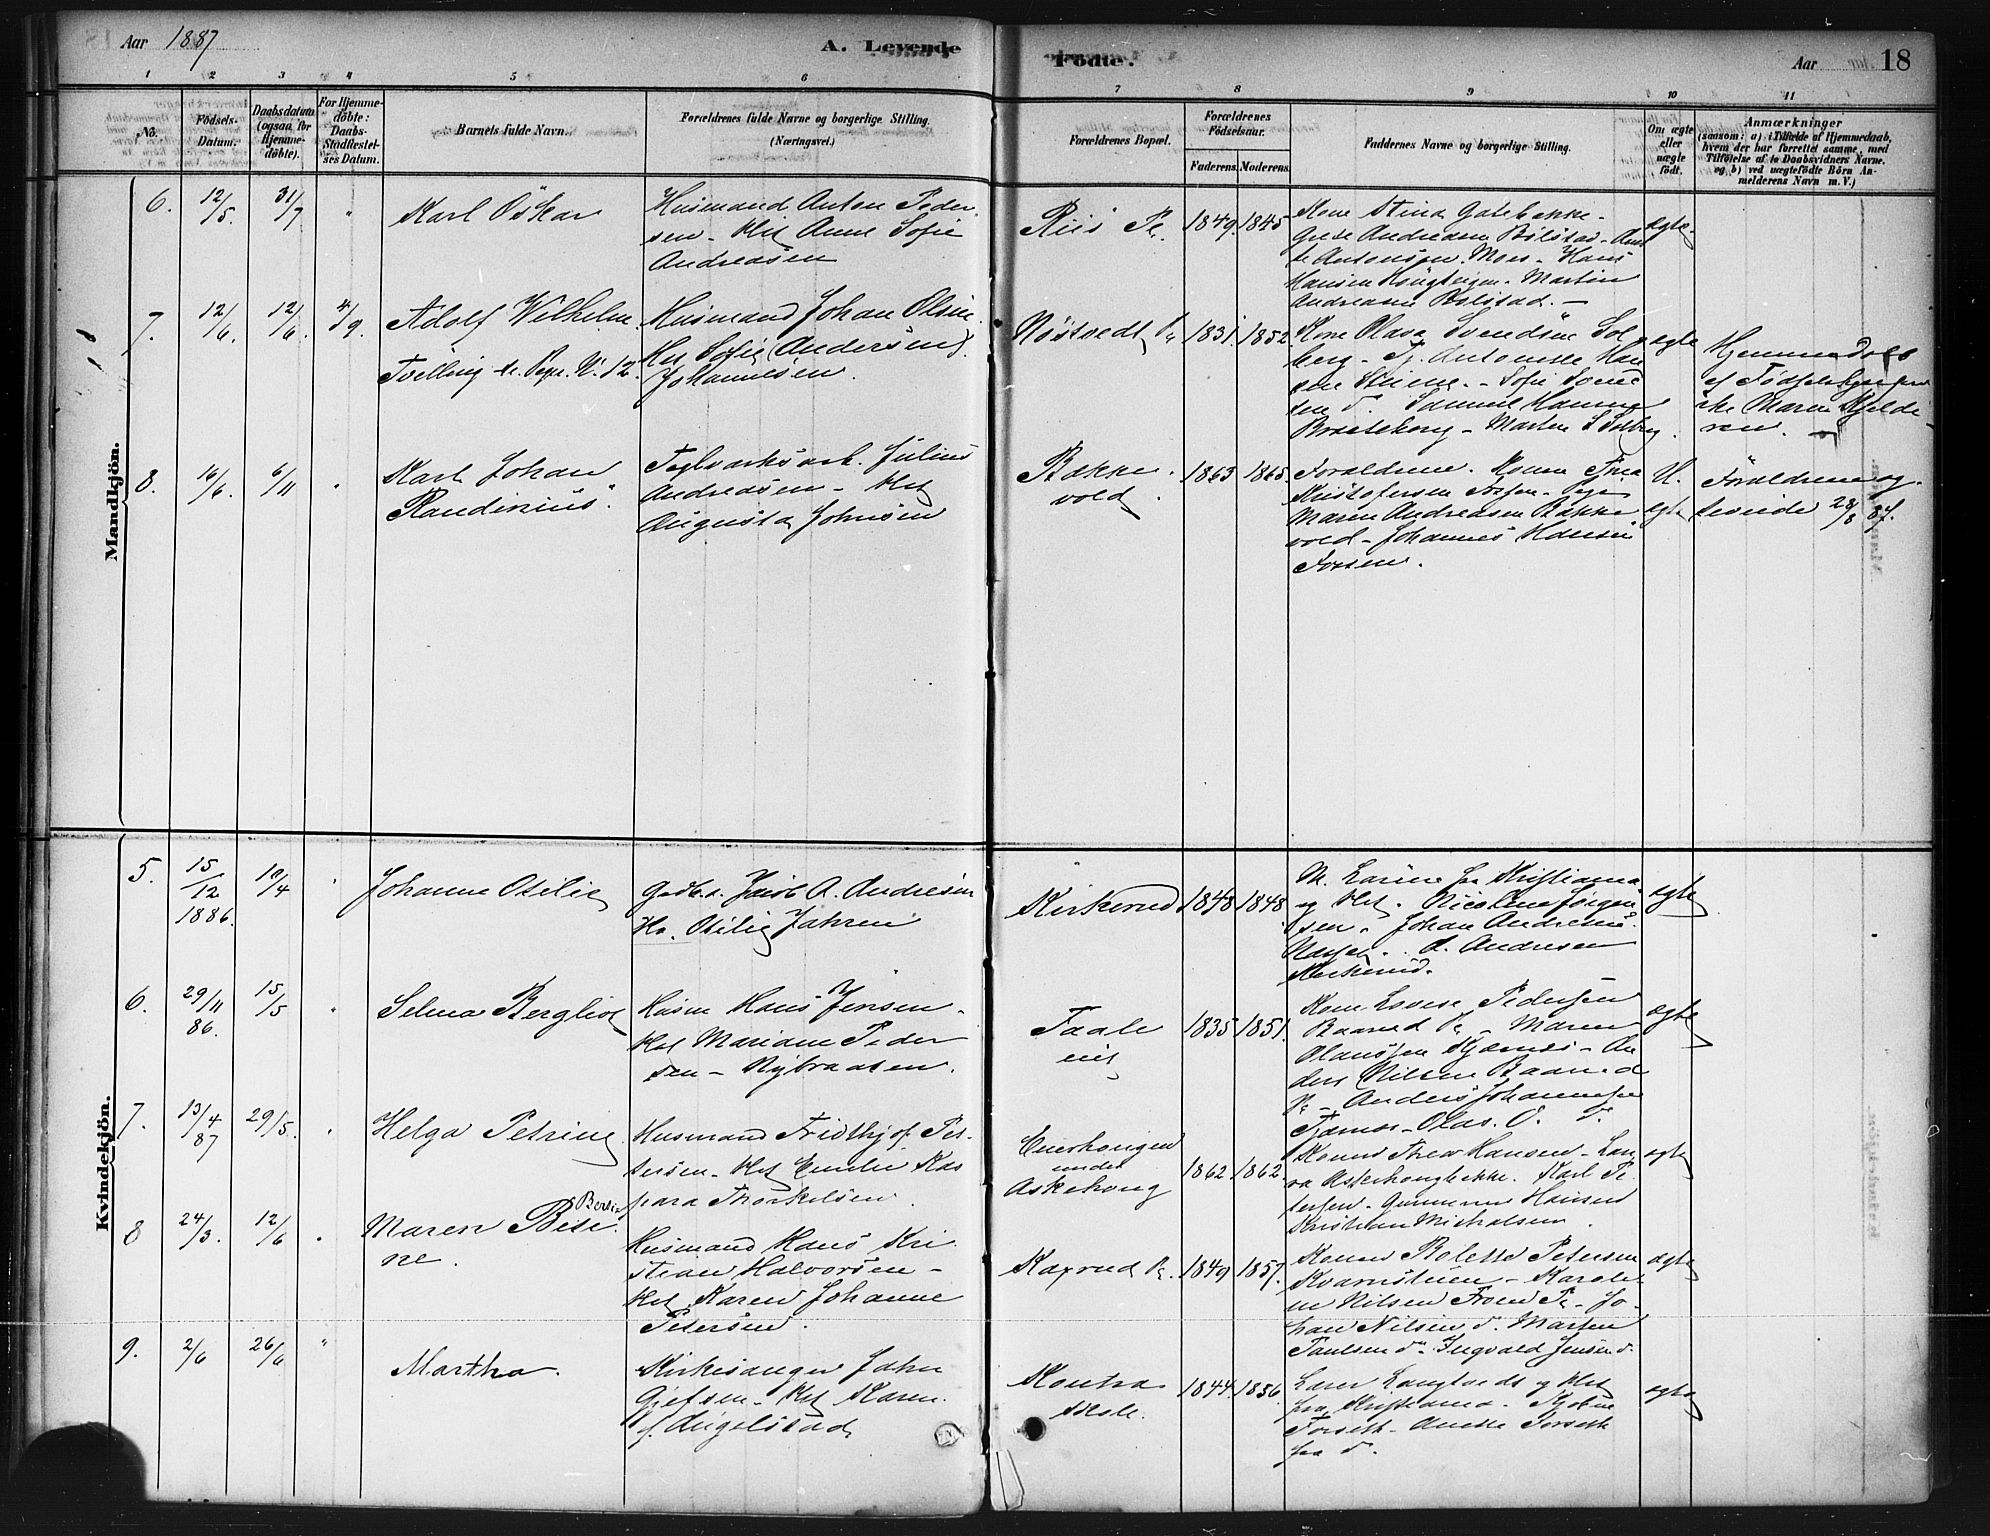 Aar 1887
A. Levende
Fødte.
Aar 18
1 2 3 4 5 6 7 8 9 10 11
No.
Födsels-Datum.
Daabsdatum (ogsaa for Hjemmedöbte).
For Hjemmedöbte: Daabs-Stadfæstelses Datum.
Barnets fulde Navn.
Forældrenes fulde Navne og borgerlige Stilling. (Næringsvei.)
Forældrenes Bopæl.
Forældrenes Födselsaar.
Faderens. Moderens.
Faddernes Navne og borgerlige Stilling.
Om ægte eller uægte födt.
Anmærkninger
(saasom: a) i Tilfælde af Hjemmedaab, hvem der har forrettet samme, med Tilföielse af to Daabsvidners Navne. og b) ved uægtefödte Börn Anmelderens Navn m. V.)
Mandkjön.
6. 12/5. 31/7. " Karl Oskar
Husmand Anton Peder-
sen - Hst Anne Sofie
Andreasen
Riis Pl. 1849. 1845
Kone Stina Gatebakke -
Andreasen Bölstad -
Antonsen Moss - Hans
Hansen - Martin
Andreasen Bölstad. -
ægte
7. 12/6. 12/6. 4/9. Adolf Wilhelm
Tvilling se Pige N. 12.
Husmand Johan Olsen
Hst Sofie (Andersen)
Johannesen.
Nöstvedt Pl 1831. 1852.
Kone Olava Svendsen Sol-
berg - Pj. Antonette Han
sen - Sofie Svend
sen d. Samuel Hansen
Brateberg - Martin S Solberg.
ægte
Hjemmedöbt
af Födselshjelper
ske Maren Kjelde
ren.
8. 16/6. 6/11 " Karl Johan
Randinius.
Teglværksarb. Julius
Andreasen - Hst
Augusta Johnsen
Bække-
vold. 1863 1865.
Forældrene. Konen Thea
Kristofersen Fossen - Pige
Maren Andreasen Bække
vold - Johannes Hansen
Fossen.
U.
ægte
Forældrene og-
28/8 87.
Kvindekjön.
5. 15/12 1886. 10/4 " Johanne Otilie
Gadb. s. Jacob A. Andresen
Ha. Otilie Jahren
Kirkerud 1848 1848
M. Larine fra Kristiania
og Hst. Nicoline Jörgen
sen. Johan Andresen
A. Andresen
Kirkerud.
ægte
6. 29/11 86. 15/5 " Selma Bergliot
Husm Hans Jensen -
Hst Mariane Peder
sen - Nybraaten.
Taale
1835 1851.
Kone Lovise Pedersen
Baarud Pl - Maren
Olaussen - An
ders Nilsen Baarud
Pl - Anders Johannesen
- Olas. O. d.
ægte
7. 13/4 87 29/5. " Helga Petrine
Husmand Fridthjof Pet-
tersen - Hst Emilie Kas
para Thorkelsen.
Enerhougen
under
Askehoug 1862 1862.
Konen Thea Hansen - Lau
ra Asterhougbekke. Karl Pe
tersen - Gunnerius Hansen
Kristian Michalsen.
ægte
8 24/3. 12/6 " Maren Bertine
ne.
Husmand Hans Kri
stian Halvorsen -
Hst Karen Johanne
Petersen.
Kaxrud Pl. 1849 1857.
Konen Bolette Petersen
Kvarnstuen - Karoli-
ne Nilsen Froen Pl - Jo-
han Nilsen d. Martin
Paulsen d. Ingvald Jensen d.
ægte
9. 2/6 26/6 " Martha.
Kirkesanger John
Gjefsen - Hst Karen
f. Angelstad
Kontra
skole. 1844. 1856.
Lærer Langtvedt og Hst
fra Kristiania.
Forseth - Anette Forseth
fra d.
ægte